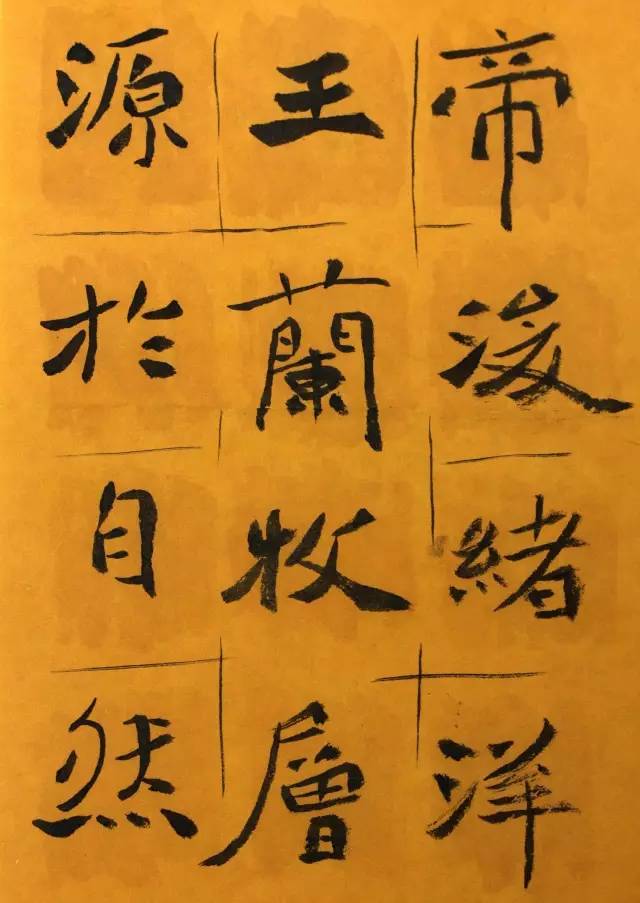 帝浚緒洋
王蘭牧層
源於自然